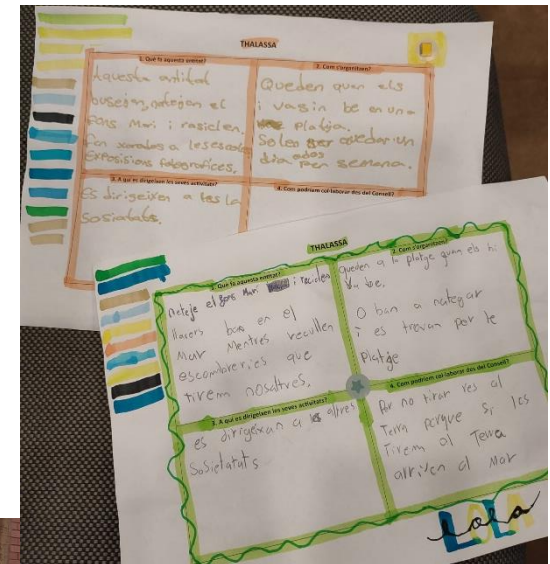 THALASSA
1. Què fa aquesta entitat?
Aquesta entitat
busejan, netejan el
fons Mari i rasiclen.
fan xarrades a les escoles
Exposisions fotografices.
2. Com s'organitzen?
Queden quan els
i vagin be en una
platja.
Solen ser quedar un
dia ados per semana.
3. A qui es dirigeixen les seves activitats?
Es dirigeixen a tes la
Sosiatats.
4. Com podríem col·laborar des del Consell?
THALASSA
1. Què fa aquesta entitat?
Neteje el fons Mari i reciclen
llavers bas en el
Mar Mentres recullen
escombreries que
tirem nosaltres.
2. Com s'organitzen?
queden a la platge quan els hi
va be.
O ban a nategar
i es trevan per le
Platge
3. A qui es dirigeixen les seves activitats?
es dirigeixan a les altres
Sosietatats
4. Com podríem col·laborar des del Consell?
Per no tirar res al
Terra perque si les
Tirem al Terra
arriven al Mar
LOLA
Lola